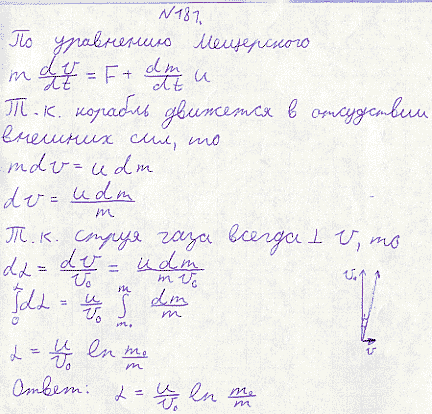 №181.
По уравнению Мещерского
m dv/dt = F + dm/dt u
Т.к. корабль движется в отсудствии
внешних сил, то
m dv = u dm
dv = u dm / m
Т.к. струя газа всегда ⊥ v, то
dα = dv/v₀ = u dm / m v₀
∫₀^α dα = u/v₀ ∫_{m₀}^{m} dm/m
α = u/v₀ ln m₀/m
v₀
v
Ответ: α = u/v₀ ln m₀/m